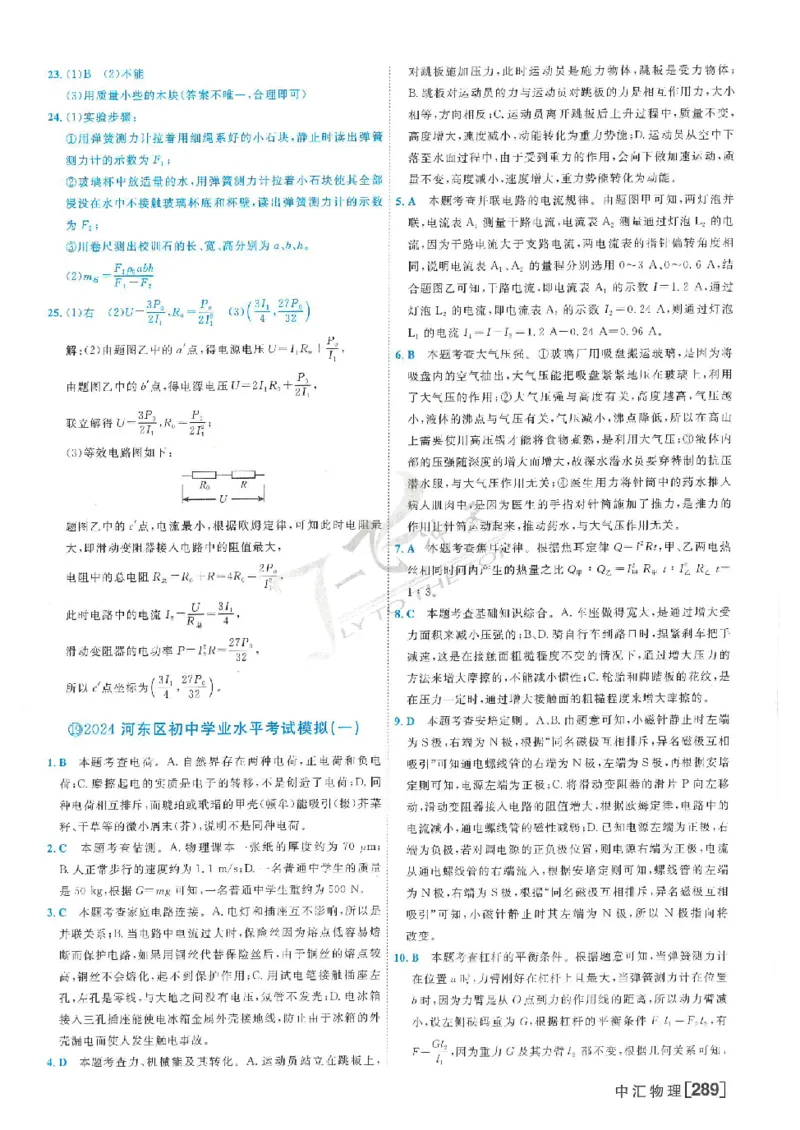 23. (1)B (2)不能
(3)用质量小些的木块(答案不唯一,合理即可)
24. (1)实验步骤:
①用弹簧测力计拉着用细绳系好的小石块,静止时读出弹簧
测力计的示数为 F₁;
②玻璃杯中放适量的水,用弹簧测力计拉着小石块使其全部
浸没在水中不接触玻璃杯底和杯壁,读出弹簧测力计的示数
为 F₂;
③用卷尺测出校训石的长、宽、高分别为 a、b、h。
(2)m石=F₁ρ₀abh/(F₁-F₂)
25. (1)右 (2)U=3P₀/2I₁,R₀=P₀/2I₁² (3)(3I₁/4,27P₀/32)
解:(2)由题图乙中的 a′点,得电源电压 U=I₁R₀+P₀/I₁,
由题图乙中的 b′点,得电源电压 U=2I₁R₀+P₀/2I₁,
联立解得 U=3P₀/2I₁,R₀=P₀/2I₁²;
(3)等效电路图如下:
R₀ R
U
题图乙中的 c′点,电流最小,根据欧姆定律,可知此时电阻最
大,即滑动变阻器接入电路中的阻值最大,
电阻中的总电阻 R总=R₀+R=4R₀=2P₀/I₁²,
此时电路中的电流 I₂=U/R总=3I₁/4,
滑动变阻器的电功率 P=I₂²R=27P₀/32,
所以 c′点坐标为(3I₁/4,27P₀/32)。
⑲2024 河东区初中学业水平考试模拟(一)
1. B 本题考查电荷。A. 自然界存在两种电荷,正电荷和负电
荷;C. 摩擦起电的实质是电子的转移,不是创造了电荷;D. 同
种电荷相互排斥,而琥珀或玳瑁的甲壳(顿牟)能吸引(掇)芥菜
籽、干草等的微小屑末(芥),说明不是同种电荷。
2. C 本题考查估测。A. 物理课本一张纸的厚度约为 70 μm;
B. 人正常步行的速度约为 1.1 m/s;D. 一名普通中学生的质量
是 50 kg,根据 G=mg 可知,一名普通中学生重约为 500 N。
3. C 本题考查家庭电路连接。A. 电灯和插座互不影响,所以是
并联关系;B. 当电路中电流过大时,保险丝因为熔点低容易熔
断而保护电路,如果用铜丝代替保险丝后,由于铜丝的熔点较
高,铜丝不会熔化,起不到保护作用;C. 用试电笔接触插座左
孔,左孔是零线,与大地之间没有电压,氖管不发光;D. 电冰箱
接入三孔插座能使电冰箱金属外壳接地线,防止由于冰箱的外
壳漏电而使人发生触电事故。
4. D 本题考查力、机械能及其转化。A. 运动员站立在跳板上,
对跳板施加压力,此时运动员是施力物体,跳板是受力物体;
B. 跳板对运动员的力与运动员对跳板的力是相互作用力,大小
相等,方向相反;C. 运动员离开跳板后上升过程中,质量不变,
高度增大,速度减小,动能转化为重力势能;D. 运动员从空中下
落至水面过程中,由于受到重力的作用,会向下做加速运动,质
量不变,高度减小,速度增大,重力势能转化为动能。
5. A 本题考查并联电路的电流规律。由题图甲可知,两灯泡并
联,电流表 A₁ 测量干路电流,电流表 A₂ 测量通过灯泡 L₂ 的电
流,因为干路电流大于支路电流,两电流表的指针偏转角度相
同,说明电流表 A₁、A₂ 的量程分别选用 0~3 A、0~0.6 A,结
合题图乙可知,干路电流,即电流表 A₁ 的示数 I=1.2 A,通过
灯泡 L₂ 的电流,即电流表 A₂ 的示数 I₂=0.24 A,则通过灯泡
L₁ 的电流 I₁=I-I₂=1.2 A-0.24 A=0.96 A。
6. B 本题考查大气压强。①玻璃厂用吸盘搬运玻璃,是因为将
吸盘内的空气抽出,大气压能把吸盘紧紧地压在玻璃上,利用
了大气压的作用;②大气压强与高度有关,高度越高,气压越
小,液体的沸点与气压有关,气压减小,沸点降低,所以在高山
上需要使用高压锅才能将食物煮熟,是利用大气压;③液体内
部的压强随深度的增大而增大,故深水潜水员要穿特制的抗压
潜水服,与大气压作用无关;④医生用力将针筒中的药水推入
病人肌肉中,是因为医生的手指对针筒施加了推力,是推力的
作用让针筒运动起来,推动药水,与大气压作用无关。
7. A 本题考查焦耳定律。根据焦耳定律 Q=I²Rt,甲、乙两电热
丝相同时间内产生的热量之比 Q甲:Q乙=I甲²R甲t:I乙²R乙t=
1:3。
8. C 本题考查基础知识综合。A. 车座做得宽大,是通过增大受
力面积来减小压强的;B、D. 骑自行车到路口时,捏紧刹车把手
减速,这是在接触面粗糙程度不变的情况下,通过增大压力的
方法来增大摩擦的,不能减小惯性;C. 轮胎和脚踏板的花纹,是
在压力一定时,通过增大接触面的粗糙程度来增大摩擦的。
9. D 本题考查安培定则。A、B. 由题意可知,小磁针静止时左端
为 S 极,右端为 N 极,根据“同名磁极互相排斥,异名磁极互相
吸引”可知通电螺线管的右端为 N 极,左端为 S 极,再根据安培
定则可知,电源左端为正极;C. 将滑动变阻器的滑片 P 向左移
动,滑动变阻器接入电路的阻值增大,根据欧姆定律,电路中的
电流减小,通电螺线管的磁性减弱;D. 已知电源左端为正极,右
端为负极,若对调电源的正负极位置,则电源右端为正极,电流
从通电螺线管的右端流入,根据安培定则可知,螺线管的左端
为 N 极,右端为 S 极,根据“同名磁极互相排斥,异名磁极互相
吸引”可知,小磁针静止时其左端为 N 极,所以 N 极指向将
改变。
10. B 本题考查杠杆的平衡条件。根据题意可知,当弹簧测力计
在位置 a 时,力臂刚好在杠杆上且最大,当弹簧测力计在位置
b 时,因为力臂是从 O 点到力的作用线的距离,所以动力臂减
小,设左侧砝码重为 G,根据杠杆的平衡条件 F₁l₁=F₂l₂,有
F=Gl₂/l₁,因为重力 G 及其力臂 l₂ 都不变,根据几何关系可知,
中汇物理[289]